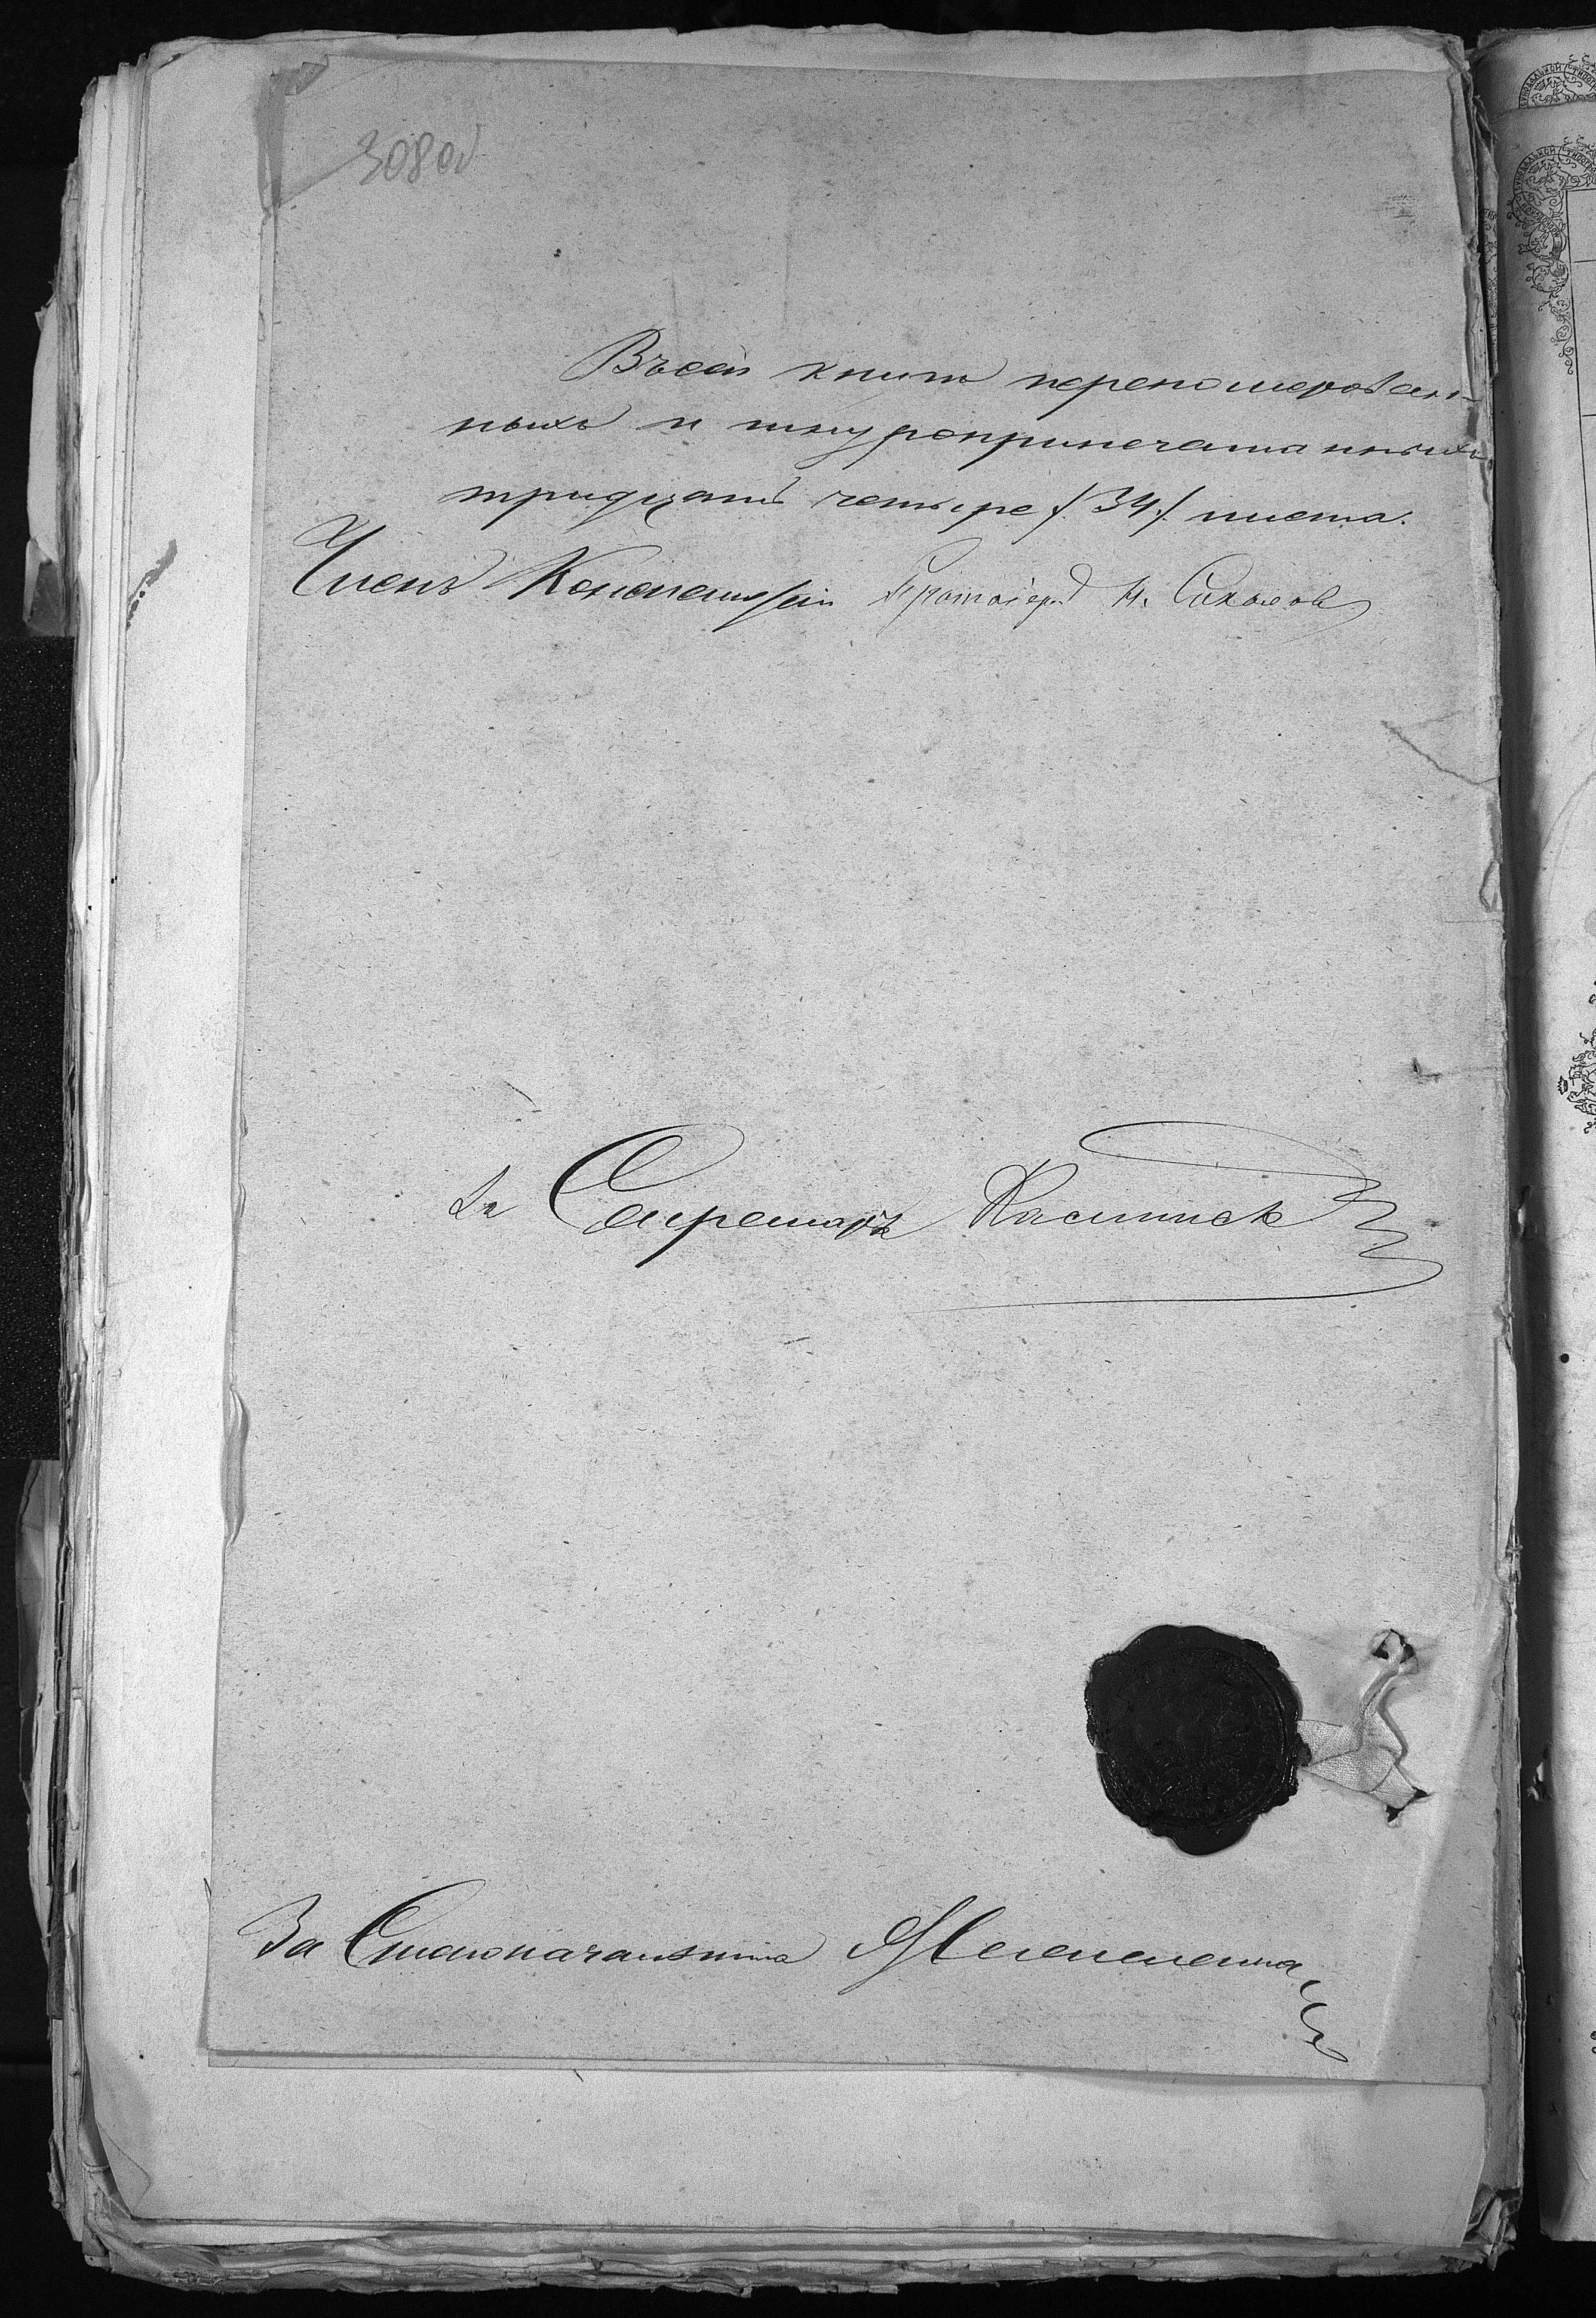 308 об
Въ сей книги переномерован-
ныхъ и шнуроприпечатанныхъ
тридцать четыре /:34:/ листа.
Членъ Консисторіи Протоіерей Н. Соколовъ
За Секретаря
За Столоначальника